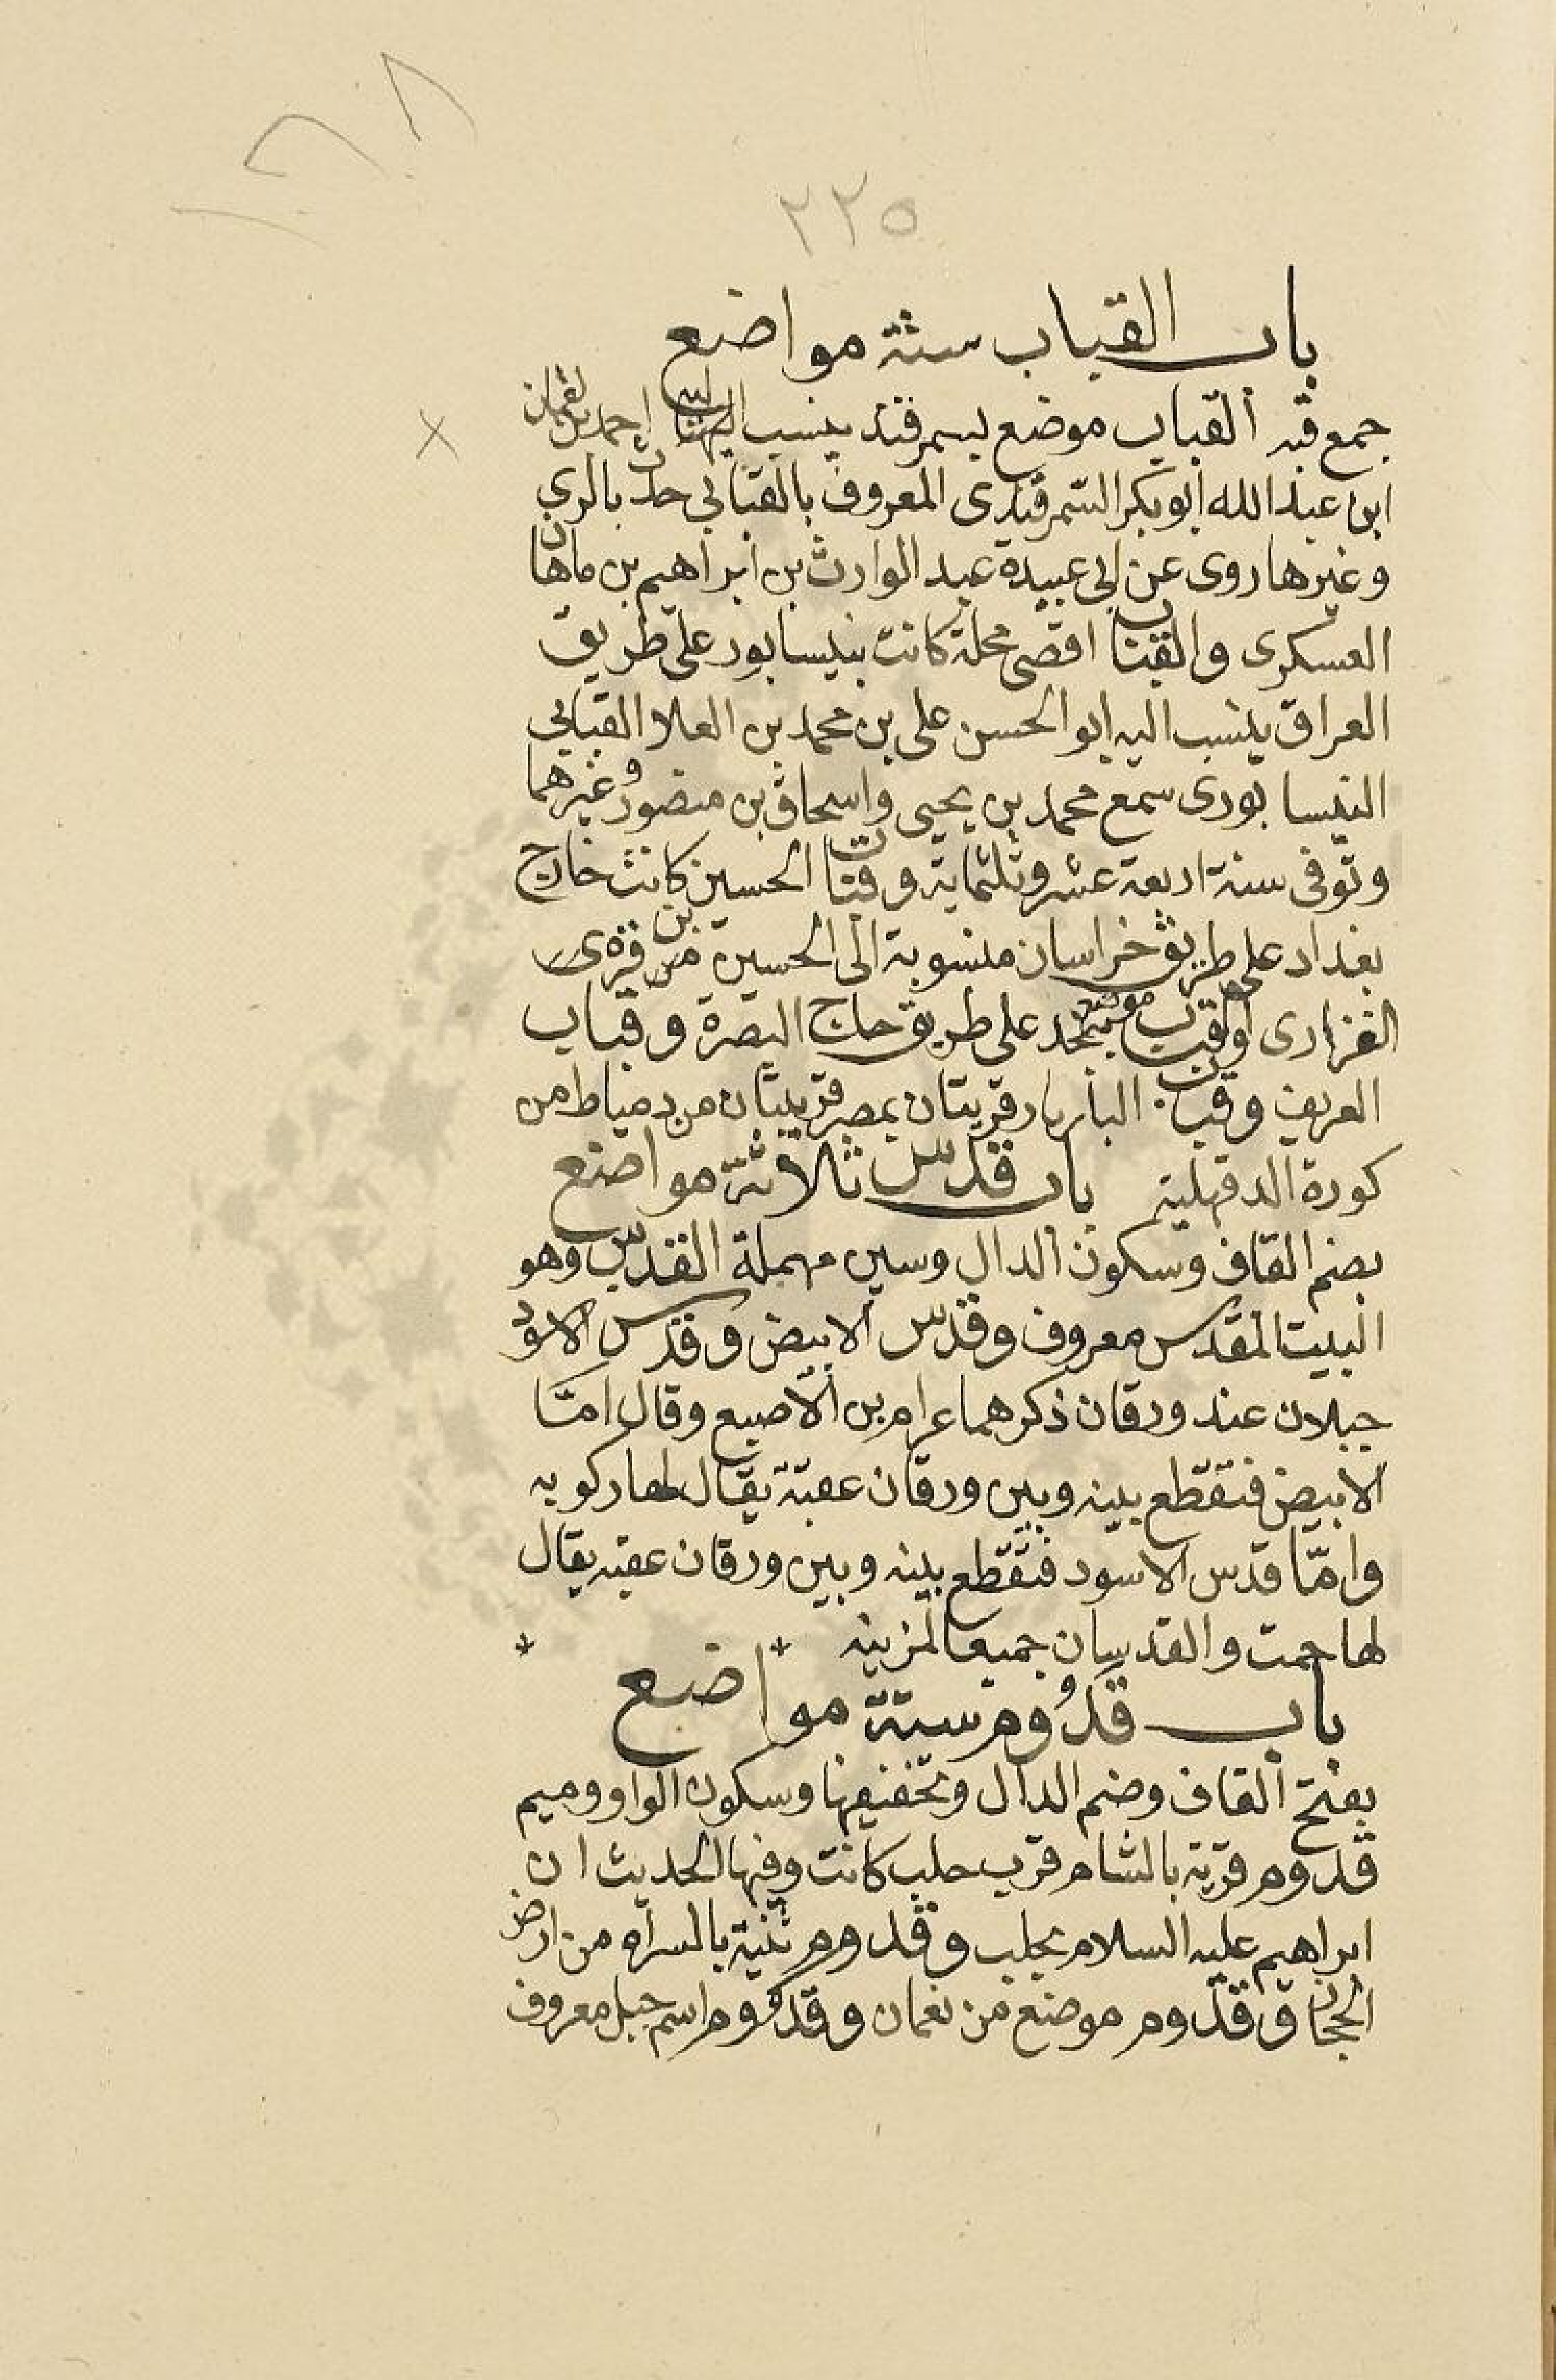 ٢٢٥
باب القباب ستة مواضع
جمع قبه القباب موضع بسمرقند ينسب اليه احمد بن لقمان
ابن عبد الله ابو بكر السمرقندى المعروف بالقبابي حدث بالري
وغيرها روى عن ابى عبيدة عبد الوارث بن ابراهيم بن ماهان
العسكرى والقباب اقصى محلة كانت بنيسابور على طريق
العراق ينسب اليه ابو الحسن على بن محمد بن العلا القبابي
النيسابورى سمع محمد بن يحيى واسحاق بن منصور وغيرهما
وتوفى سنة اربعة عشر وثلثماية وقباب الحسين كانت خارج
بغداد على طريق خراسان منسوبة الى الحسين بن قزة
الفزارى والقباب موضع بنجد على طريق حاج البصرة وقباب
العريف وقباب البازيار قريتان بمصر قريبتان من دمياط من
كورة الدقهلية باب قدس ثلاثة مواضع
بضم القاف وسكون الدال وسين مهملة القدس وهو
البيت المقدس معروف وقدس الابيض وقدس الاسود
جبلان عند ورقان ذكرهما عرام بن الاصبع وقال امّا
الابيض فتقطع بينه وبين ورقان عقبة يقال لها ركوبه
وامّا قدس الاسود فتقطع بينه وبين ورقان عقبه يقال
لها حمت والقدسان جميعا لمزينه * *
باب قدوم ستة مواضع
بفتح القاف وضم الدال وتخفيفها وسكون الواو وميم
قدوم قرية بالشام قرب حلب كانت وفيها الحديث ان
ابراهيم عليه السلام بحلب وقدوم ثنية بالسراه من ارض
الحجاز وقدوم موضع من نعمان وقدوم اسم جبل معروف